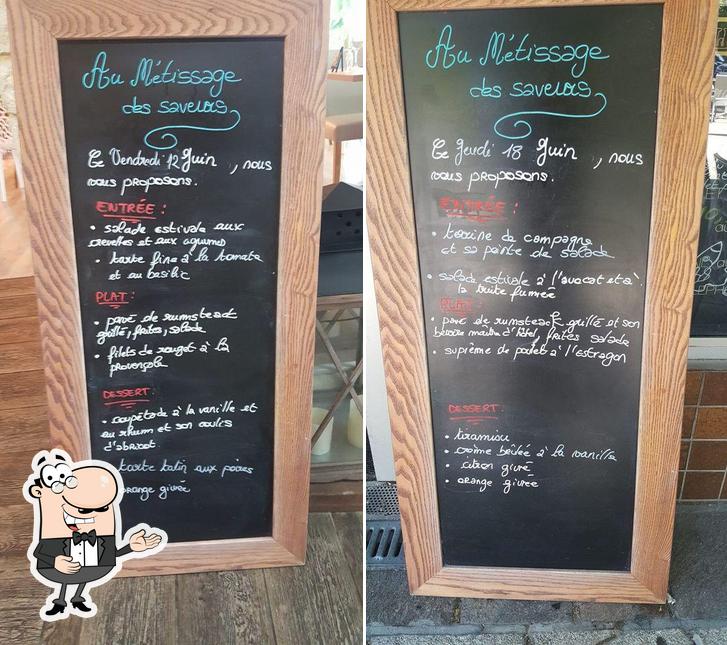 Au Métissage
des saveurs
Ce Vendredi 12 Juin , nous
vous proposons.
ENTRÉE :
• salade estivale aux
crevettes et aux agrumes
• tarte fine à la tomate
et au basilic
PLAT :
• pavé de rumsteack
grillé, frites, salade
• filets de rouget à la
provençale
DESSERT :
• coupétade à la vanille et
au rhum et son coulis
d'abricot
tarte tatin aux poires
orange givrée
Au Métissage
des saveurs
Ce Jeudi 18 Juin , nous
vous proposons.
ENTRÉE :
• terrine de campagne
et sa pointe de salade
• salade estivale à l'avocat et à
la truite fumée
PLAT :
• pavé de rumsteack grillé et son
beurre maître d'hôtel, frites salade
• suprême de poulet à l'estragon
DESSERT :
• tiramisu
• crème brûlée à la vanille
• citron givré
• orange givrée